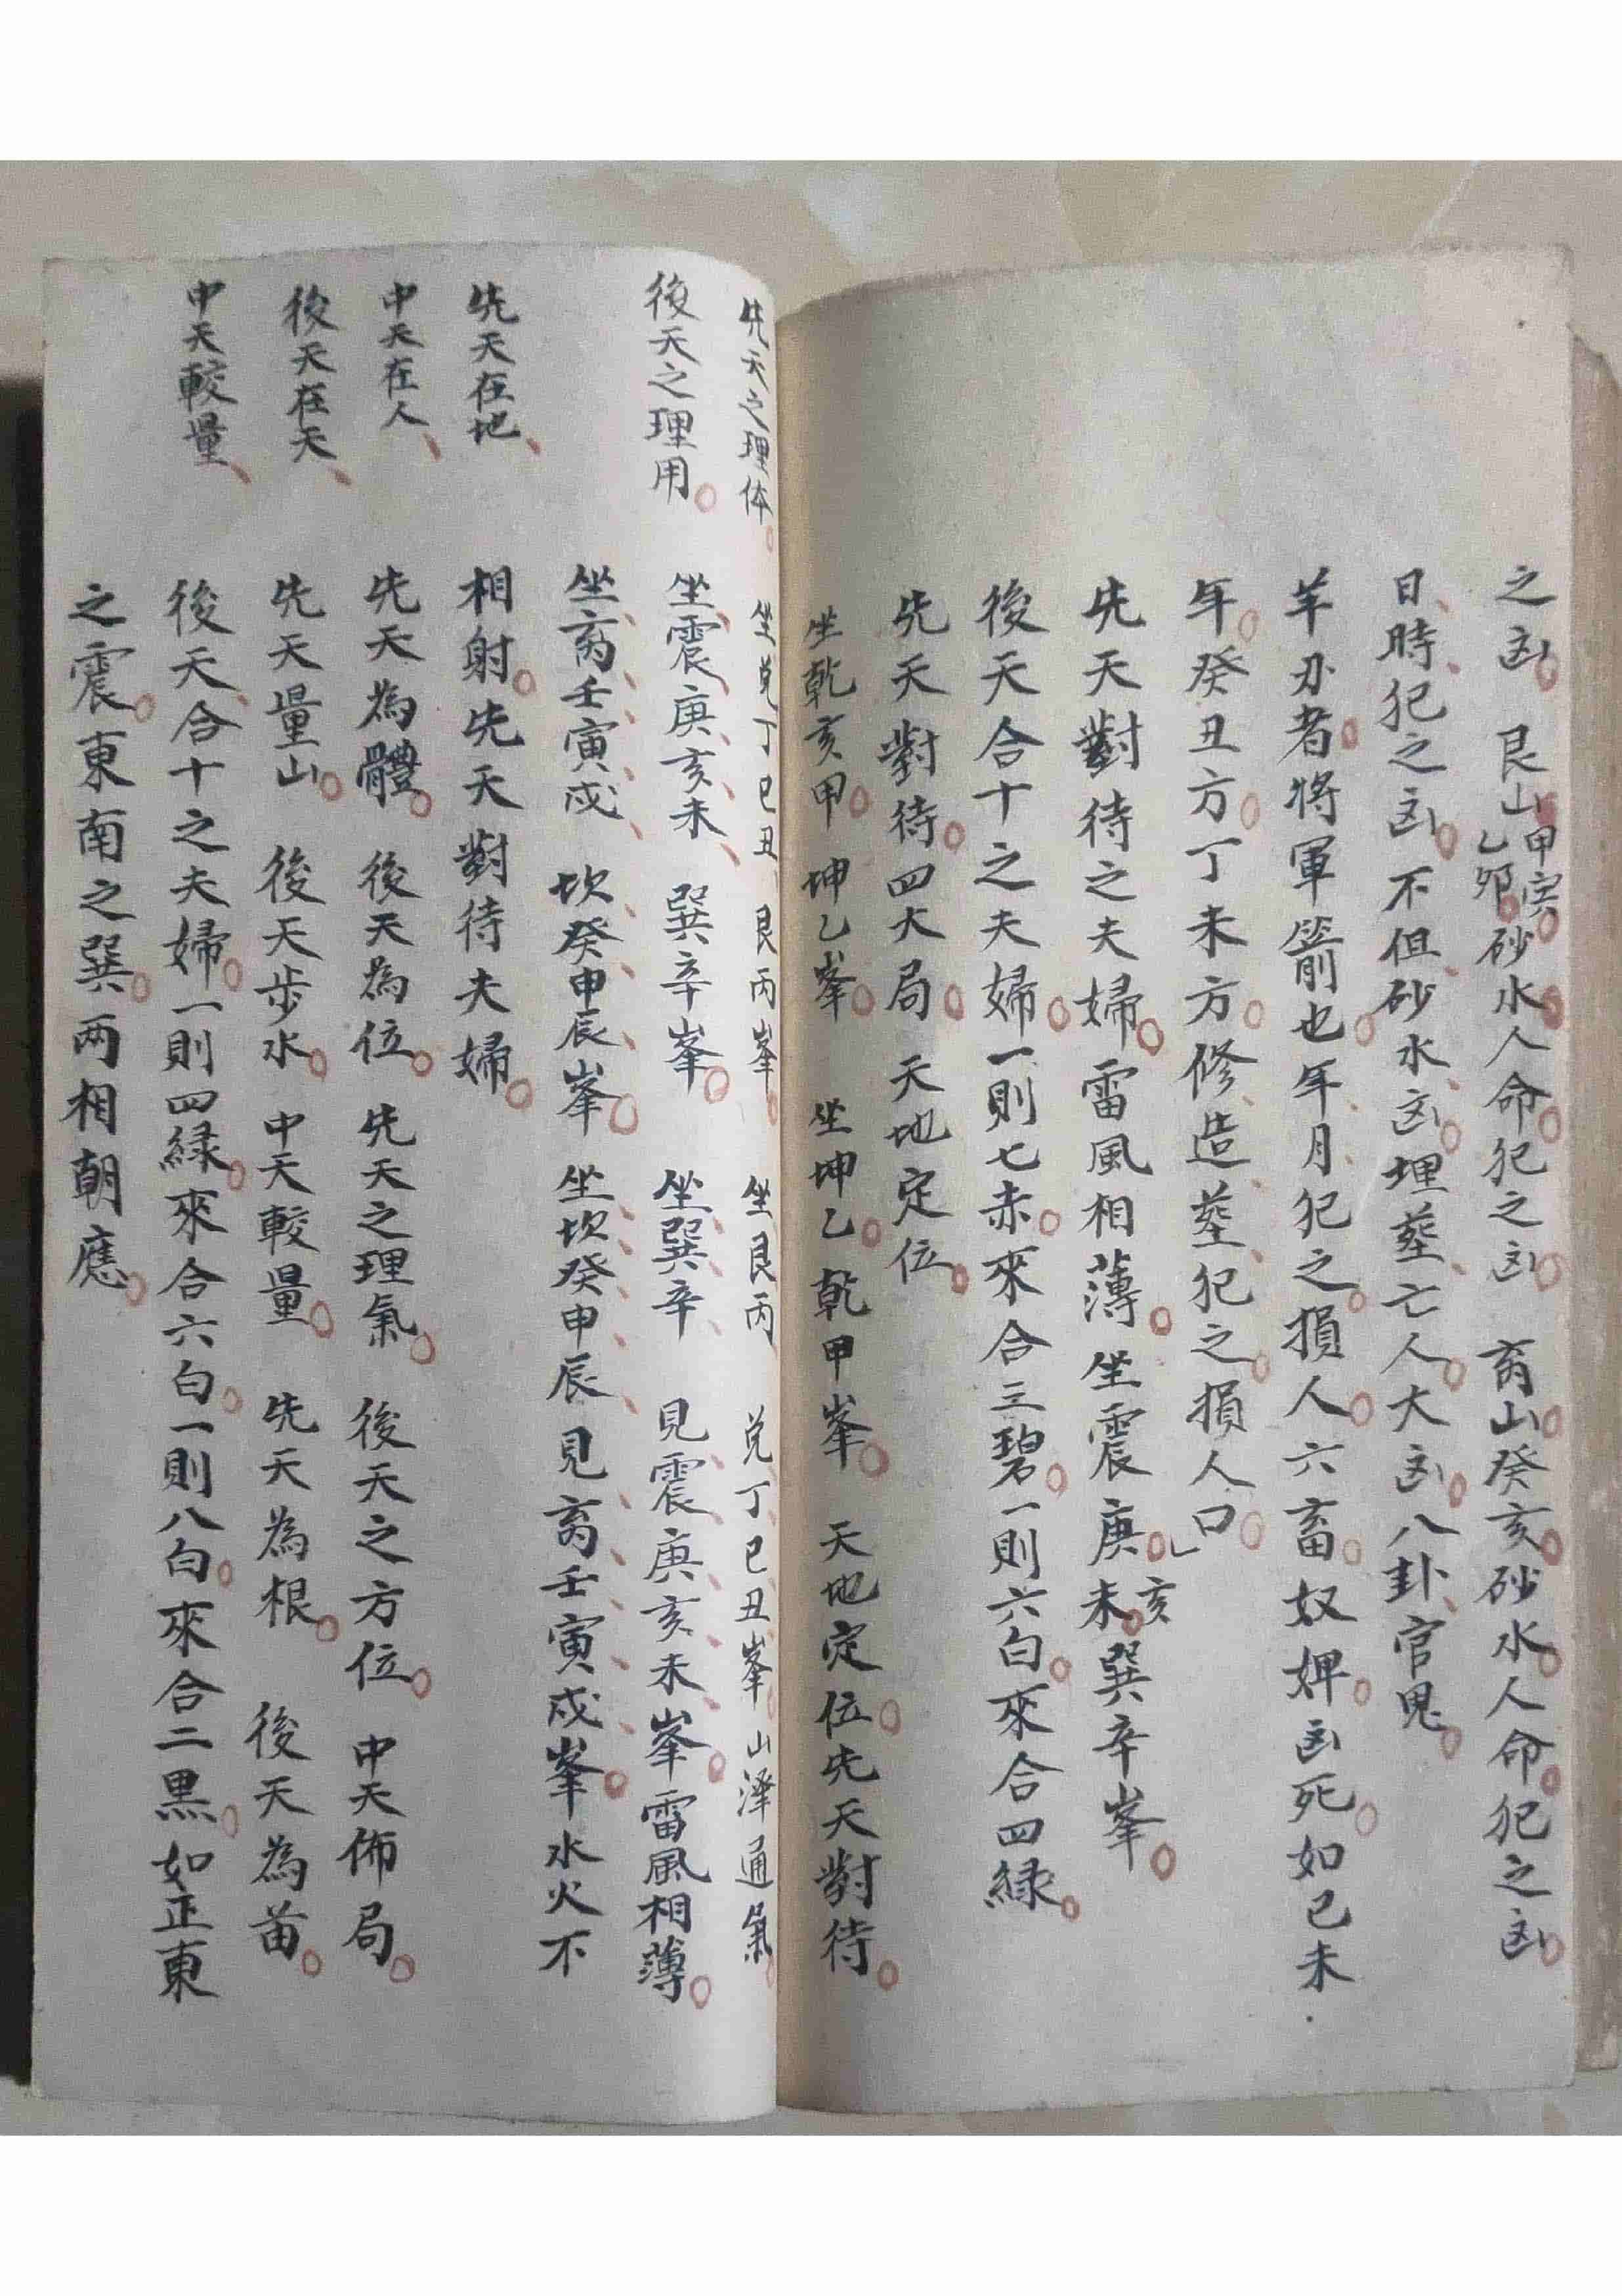 之凶。艮山甲寅。乙卯。砂水。人命。犯之凶。离山。癸亥。砂水。人命。犯之凶。
日時犯之凶。不但砂水凶。埋塟亡人。大凶。八卦官鬼。
羊刃者。將軍箭也。年月犯之。損人。六畜。奴婢。凶死。如己未
年。癸丑方。丁未方。修造塟犯之。損人口。
先天對待之夫婦。雷風相薄。坐震庚。亥未。巽辛峯。
後天合十之夫婦。一則七赤。來合三碧。一則六白。來合四緑。
先天對待。四大局。天地定位。
坐乾亥甲。坤乙峯。坐坤乙。乾甲峯。天地定位。先天對待。
先天之理体。
坐兌丁巳丑、艮丙峯。坐艮丙、兌丁巳丑峯。山澤通氣。
後天之理用。
坐震庚亥未、巽辛峯。坐巽辛、見震庚亥未峯。雷風相薄。
坐离壬寅戌、坎癸申辰峯。坐坎癸申辰、見离壬寅戌峯。水火不
先天在地、
相射。先天對待夫婦。
中天在人、
先天為體。後天為位。先天之理氣。後天之方位。中天佈局。
後天在天、
先天量山。後天步水。中天較量。先天為根。後天為苗。
中天較量、
後天合十之夫婦。一則四緑。來合六白。一則八白。來合二黒。如正東
之震。東南之巽。两相朝應。